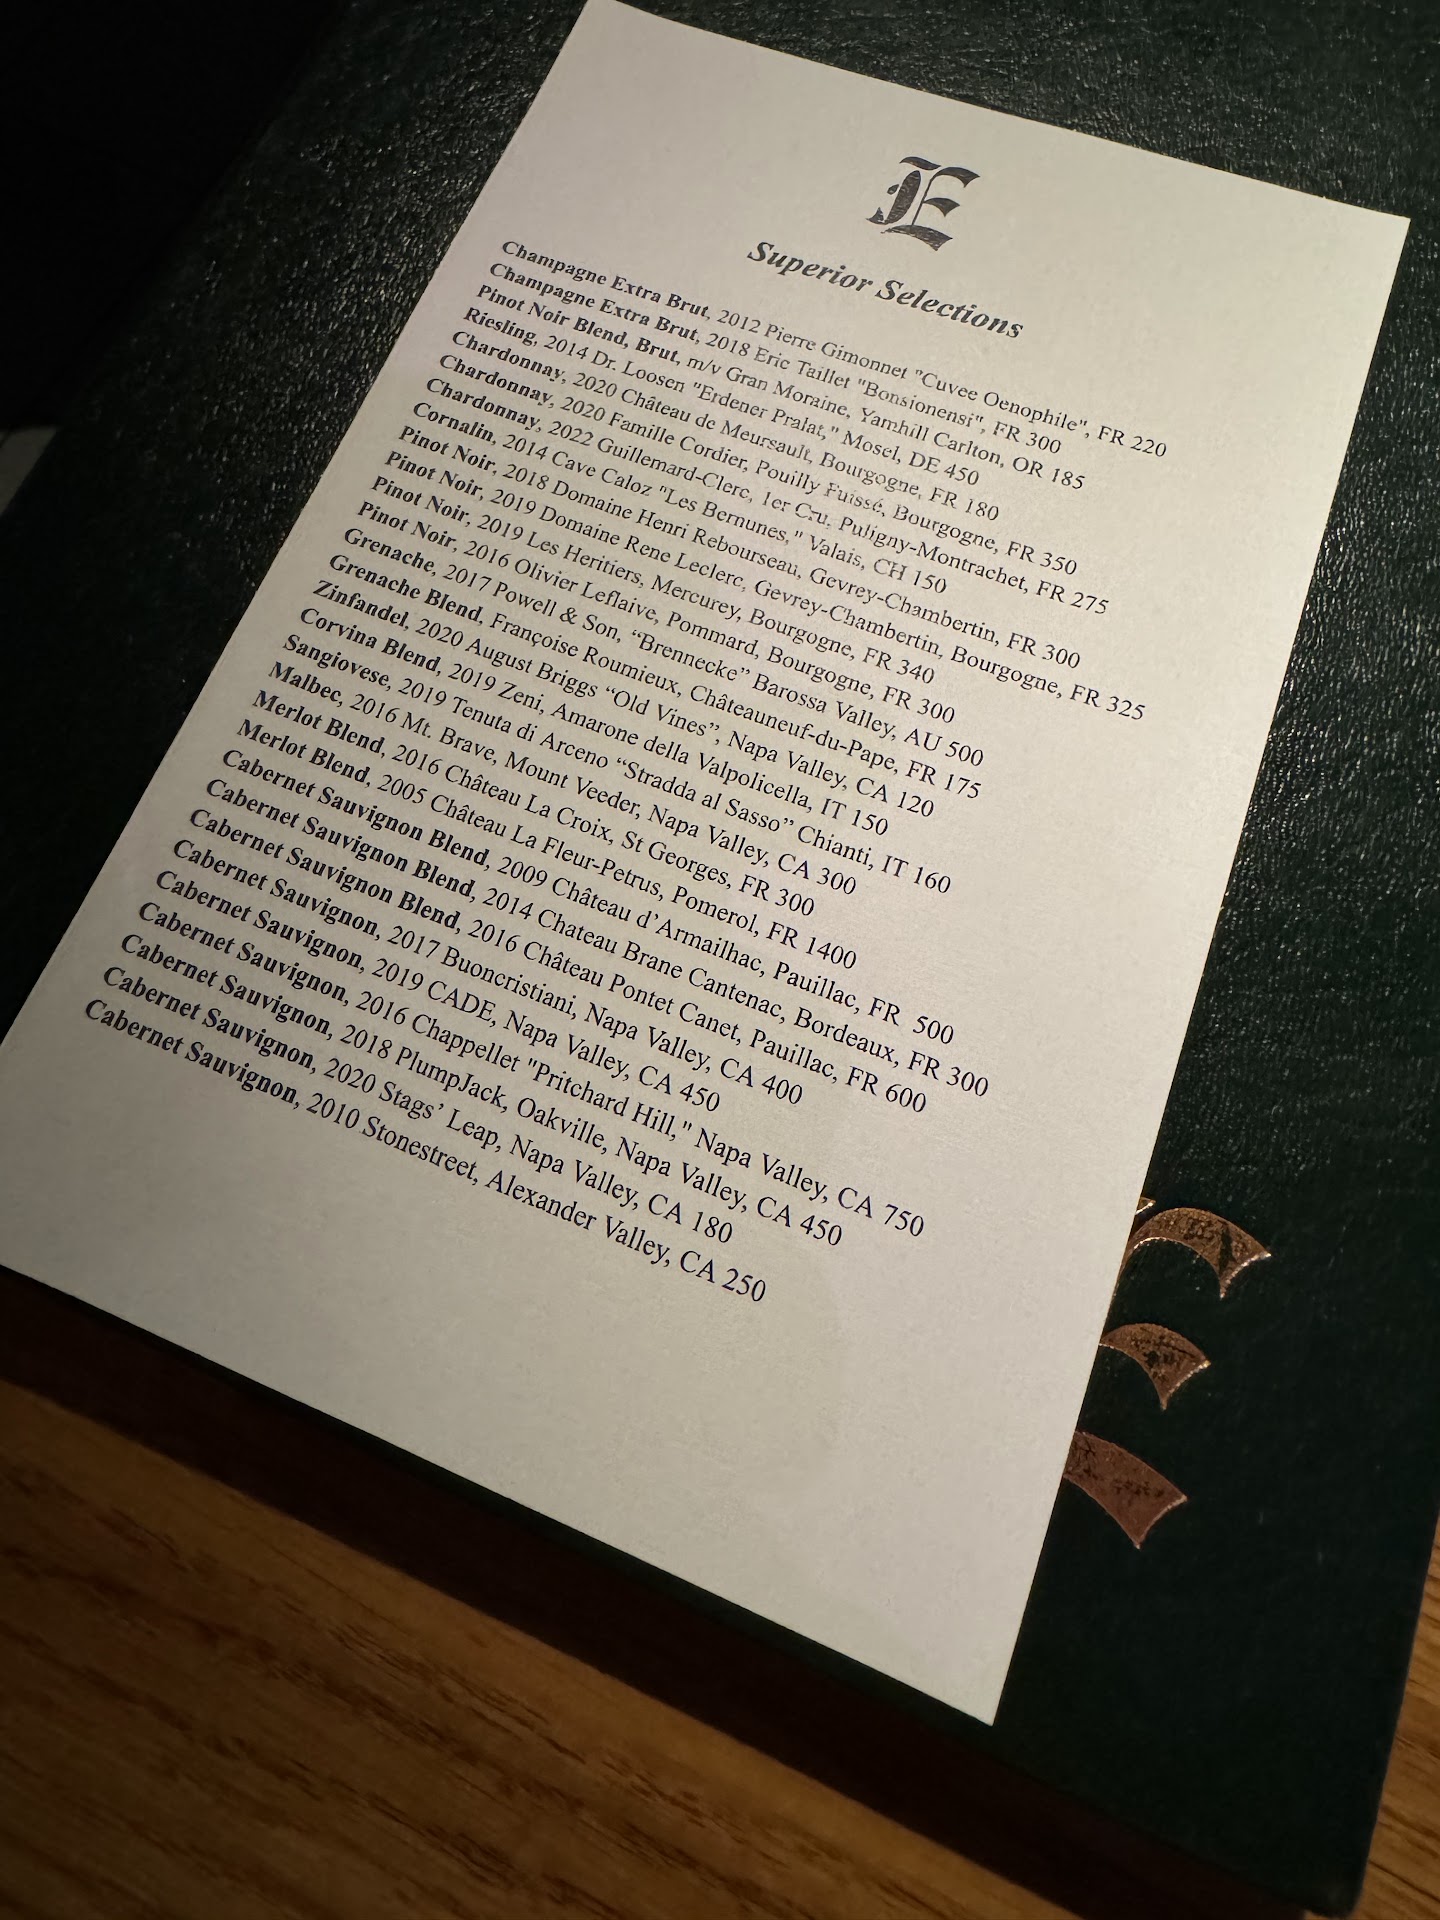 E
Superior Selections
Champagne Extra Brut, 2012 Pierre Gimonnet "Cuvee Oenophile", FR 220
Champagne Extra Brut, 2018 Eric Taillet "Bonsionensi", FR 300
Pinot Noir Blend, Brut, m/v Gran Moraine, Yamhill Carlton, OR 185
Riesling, 2014 Dr. Loosen "Erdener Pralat," Mosel, DE 450
Chardonnay, 2020 Château de Meursault, Bourgogne, FR 180
Chardonnay, 2020 Famille Cordier, Pouilly Fuissé, Bourgogne, FR 350
Chardonnay, 2022 Guillemard-Clerc, 1er Cru, Puligny-Montrachet, FR 275
Cornalin, 2014 Cave Caloz "Les Bernunes," Valais, CH 150
Pinot Noir, 2018 Domaine Henri Rebourseau, Gevrey-Chambertin, FR 300
Pinot Noir, 2019 Domaine Rene Leclerc, Gevrey-Chambertin, Bourgogne, FR 325
Pinot Noir, 2019 Les Heritiers, Mercurey, Bourgogne, FR 340
Pinot Noir, 2016 Olivier Leflaive, Pommard, Bourgogne, FR 300
Grenache, 2017 Powell & Son, “Brennecke” Barossa Valley, AU 500
Grenache Blend, Françoise Roumieux, Châteauneuf-du-Pape, FR 175
Zinfandel, 2020 August Briggs “Old Vines”, Napa Valley, CA 120
Corvina Blend, 2019 Zeni, Amarone della Valpolicella, IT 150
Sangiovese, 2019 Tenuta di Arceno “Stradda al Sasso” Chianti, IT 160
Malbec, 2016 Mt. Brave, Mount Veeder, Napa Valley, CA 300
Merlot Blend, 2016 Château La Croix, St Georges, FR 300
Merlot Blend, 2005 Château La Fleur-Petrus, Pomerol, FR 1400
Cabernet Sauvignon Blend, 2009 Château d’Armailhac, Pauillac, FR 500
Cabernet Sauvignon Blend, 2014 Chateau Brane Cantenac, Bordeaux, FR 300
Cabernet Sauvignon Blend, 2016 Château Pontet Canet, Pauillac, FR 600
Cabernet Sauvignon, 2017 Buoncristiani, Napa Valley, CA 400
Cabernet Sauvignon, 2019 CADE, Napa Valley, CA 450
Cabernet Sauvignon, 2016 Chappellet "Pritchard Hill," Napa Valley, CA 750
Cabernet Sauvignon, 2018 PlumpJack, Oakville, Napa Valley, CA 450
Cabernet Sauvignon, 2020 Stags’ Leap, Napa Valley, CA 180
Cabernet Sauvignon, 2010 Stonestreet, Alexander Valley, CA 250